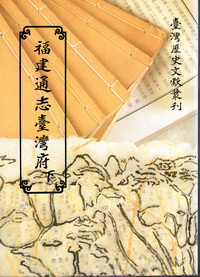 臺灣歷史文獻叢刊
福建通志臺灣府
下